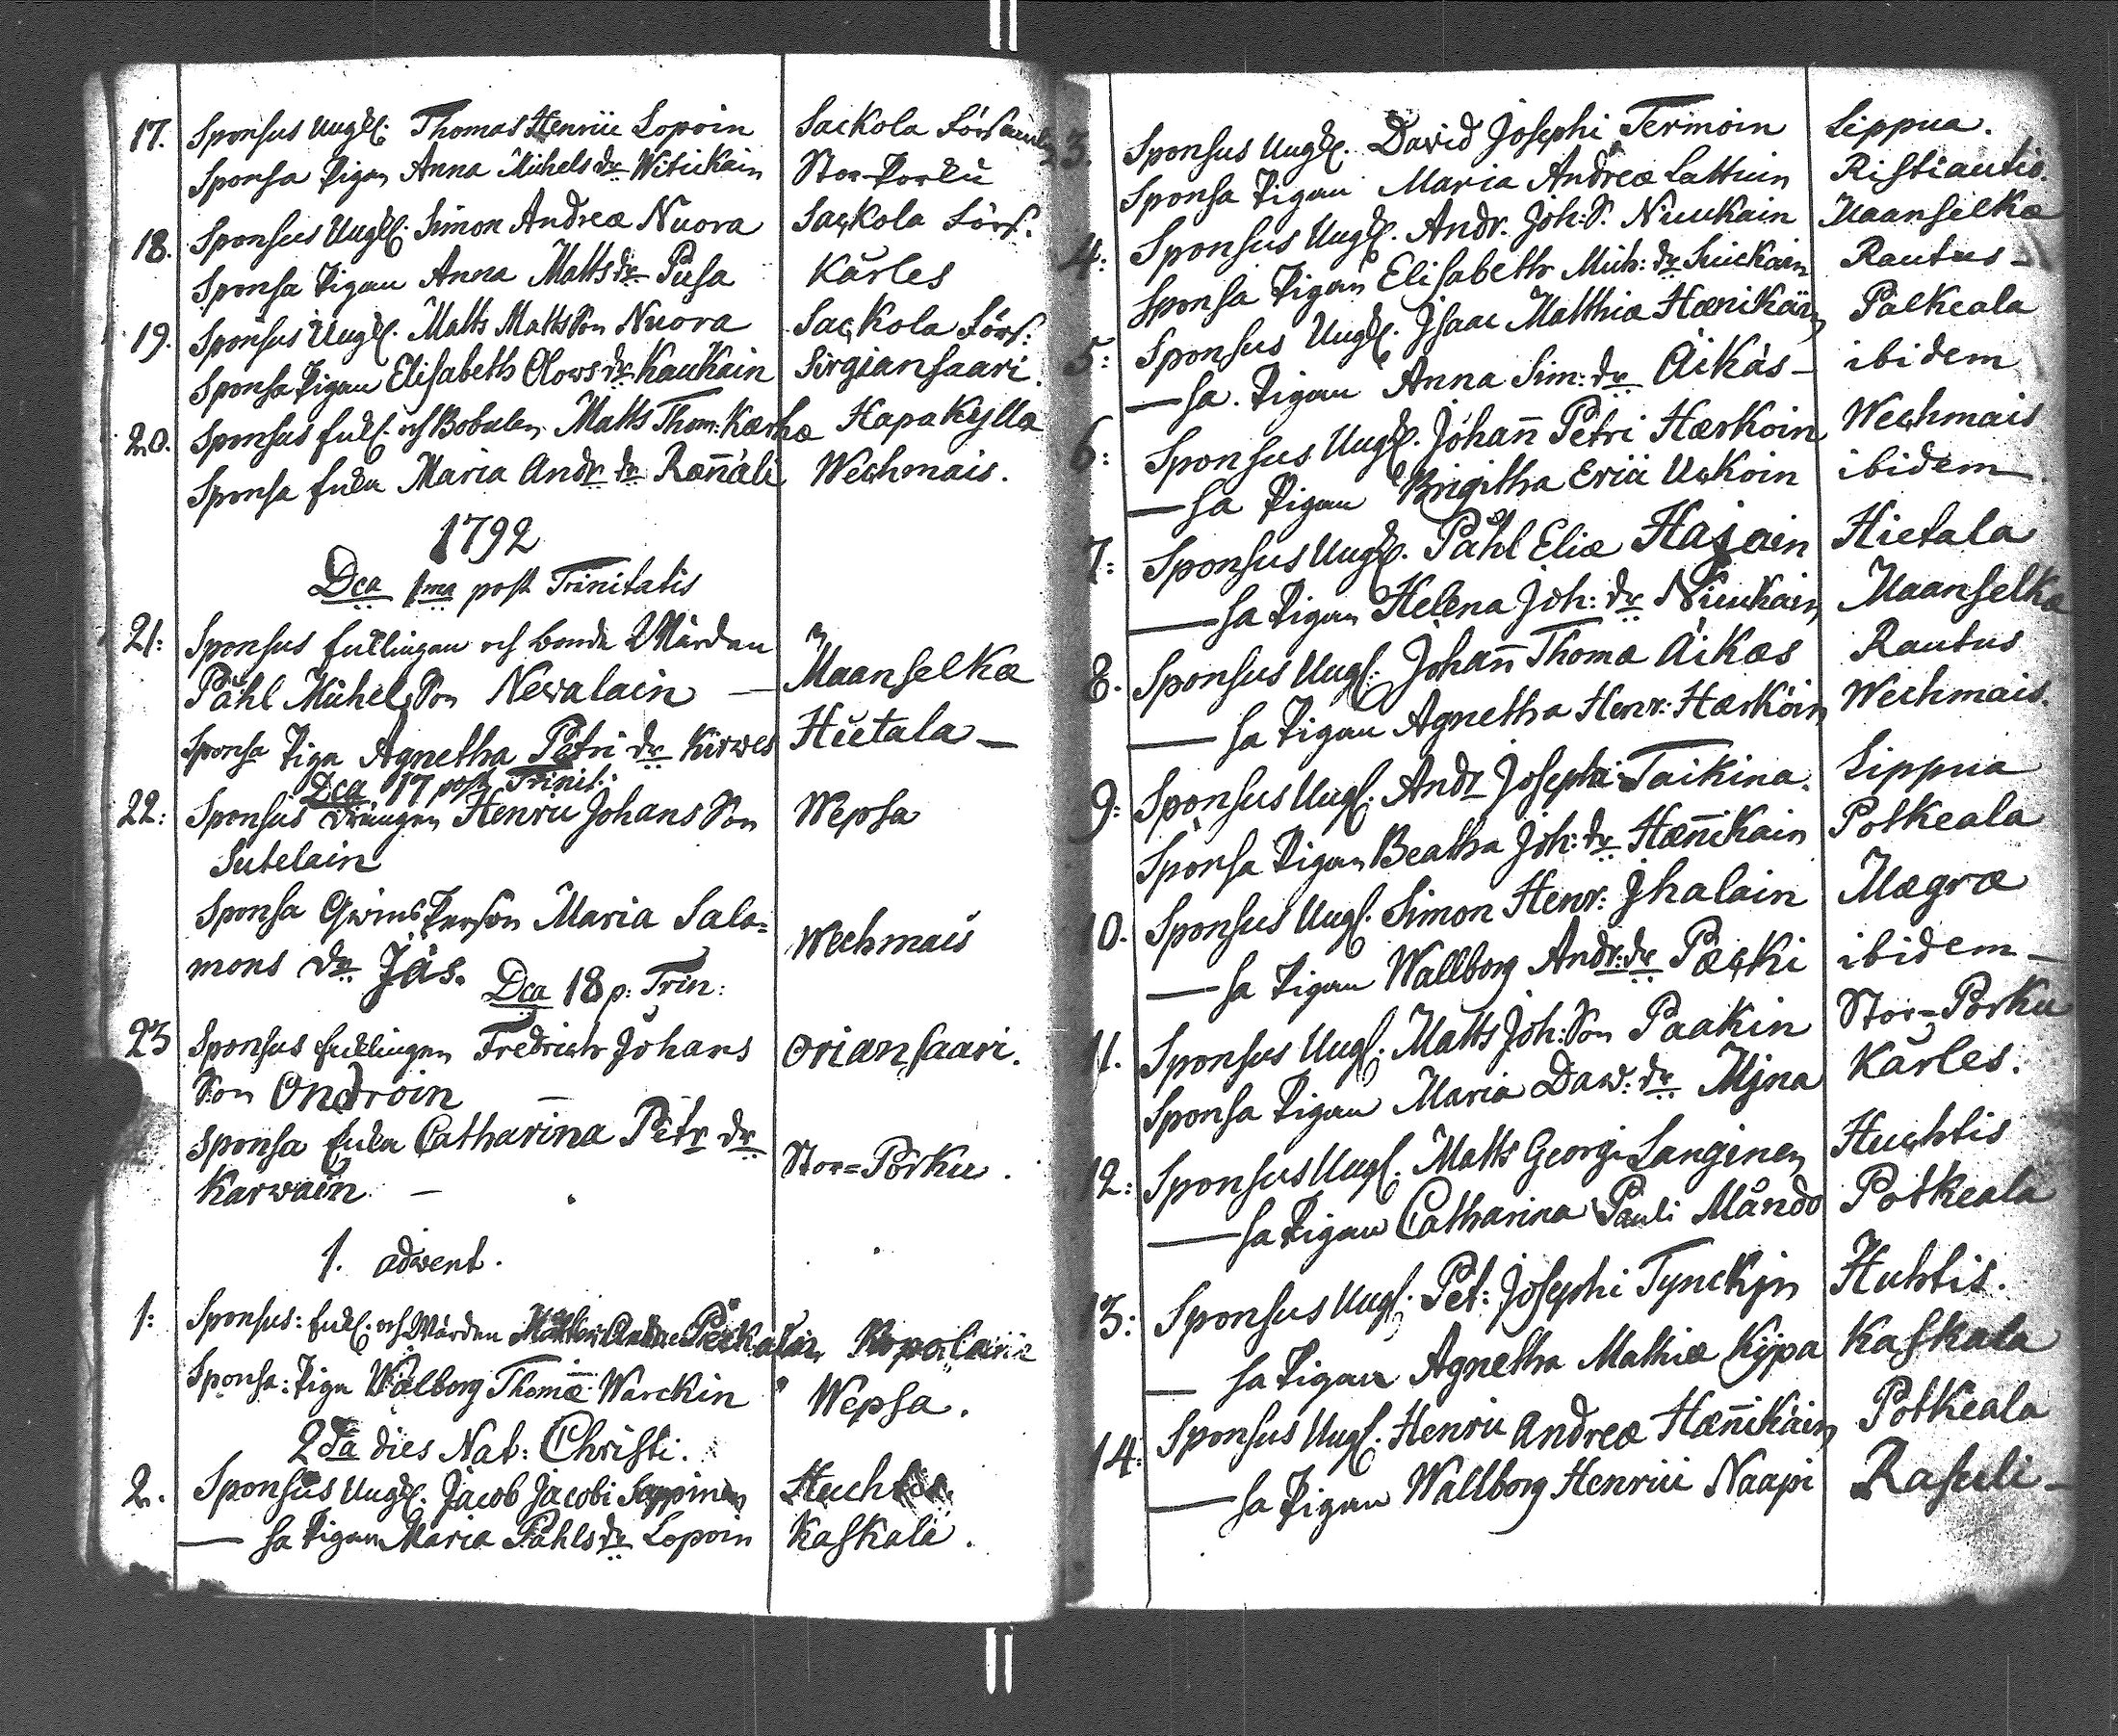 17. Sponsus Ungk. Thomas Henrici Lopoin Sackola Församl.
Sponsa Pigan Anna Michels dr Witickain Stor-Porku
18. Sponsus Ungk. Simon Andreæ Nuora Sackola Förs.
Sponsa Pigan Anna Matts dr Pusa Kärles
19. Sponsus Ungk. Matts Matts Son Nuora Sackola Förs:
Sponsa Pigan Elisabeth Olovs dr Kaukain Sirgiansaari.
20. Sponsus Enkl. och Bob Matts Thom: Kærhæ Hapakyllæ
Sponsa Enka Maria Andr. dr Rænnäli Wechmais.
1792
Dca 1ma post Trinitatis
21: Sponsus Enklingen och bonde Wärden
Påhl Michels Son Nevalain — Maanselkæ
Sponsa Piga Agnetha Petri dr Kirwes Hietala —
Dca 17 post Trinit:
22: Sponsus Drängen Henric Johans Son Wepsa
Sutelain
Sponsa Qwins Person Maria Salo=
mons dr Jäs. Wechmais
Dca 18 p: Trin:
23 Sponsus Enklingen Fredrich Johans Oriansaari.
Son Ondroin
Sponsa Enka Catharina Petr dr
Karwain — Stor=Porku.
1. advent.
1: Sponsus: Enkl. och Wärden Ropolain
Sponsa: Piga Walborg Thomæ Warckin Wepsa.
2da dies Nat: Christi.
2. Sponsus Ungk. Jacob Jacobi Seppinen Huchtis
— sa Pigan Maria Påhls dr Lopoin Kaskala.
3. Sponsus Ungk. David Josephi Termoin Lippua.
Sponsa Pigan Maria Andreæ Lattuin Ristiautio.
4: Sponsus Ungk. Andr. Joh: S. Niuukain Maanselkæ
Sponsa Pigan Elisabeth Mich: dr Suickain Rautus —
5: Sponsus Ungk. Isaac Matthiæ Hænikäin Palkeala
— sa. Pigan Anna Sim: dr Äikäs — ibidem
6: Sponsus Ungk. Johan̄ Petri Hærkoin Wechmais
— sa Pigan Brigitha Erici Uckoin ibidem
7: Sponsus Ungk. Påhl Eliæ Hajain Hietala
— sa Pigan Helena Joh: dr Niuukain Maanselkæ
8. Sponsus Ungk. Johan̄ Thomæ Äikæs Rautus
— sa Pigan Agnetha Henr: Hærköin Wechmais.
9: Sponsus Ungk. Andr Josephi Taikina. Lippua
Sponsa Pigan Beatha Joh: dr Hæn̄ikain Potkeala
10. Sponsus Ungk. Simon Henr: Ihalain Mægræ
— sa Pigan Wallborg Andr: dr Pæcki ibidem —
11. Sponsus Ungk. Matts Joh: Son Paakin Stor=Porku
Sponsa Pigan Maria Daw: dr Mÿna Kärles.
12: Sponsus Ungk. Matts Georgi Langinen Huchtis
— sa Pigan Catharina Pauli Måndo Potkeala
13: Sponsus Ungk. Pet: Josephi Tynckÿn Huhtis.
— sa Pigan Agnetha Mathiæ Kÿpa Kaskala
14: Sponsus Ungk. Henric Andreæ Hæn̄ikäin Potkeala
— sa Pigan Wallborg Henrici Naapi Rasuli —